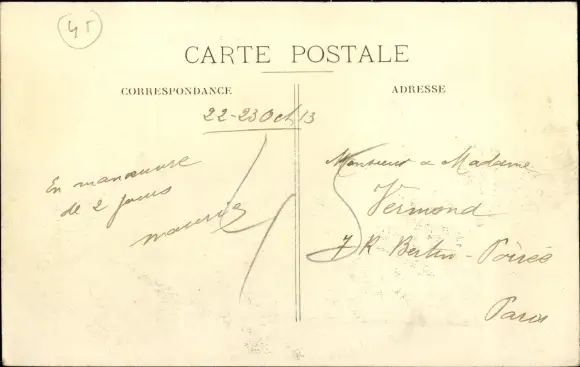 45
CARTE POSTALE
CORRESPONDANCE
ADRESSE
22-23 Oct 13
En manœuvre
de 2 jours
Maurice
45
Monsieur & Madame
Vermond
7 R Bertin-Poirée
Paris